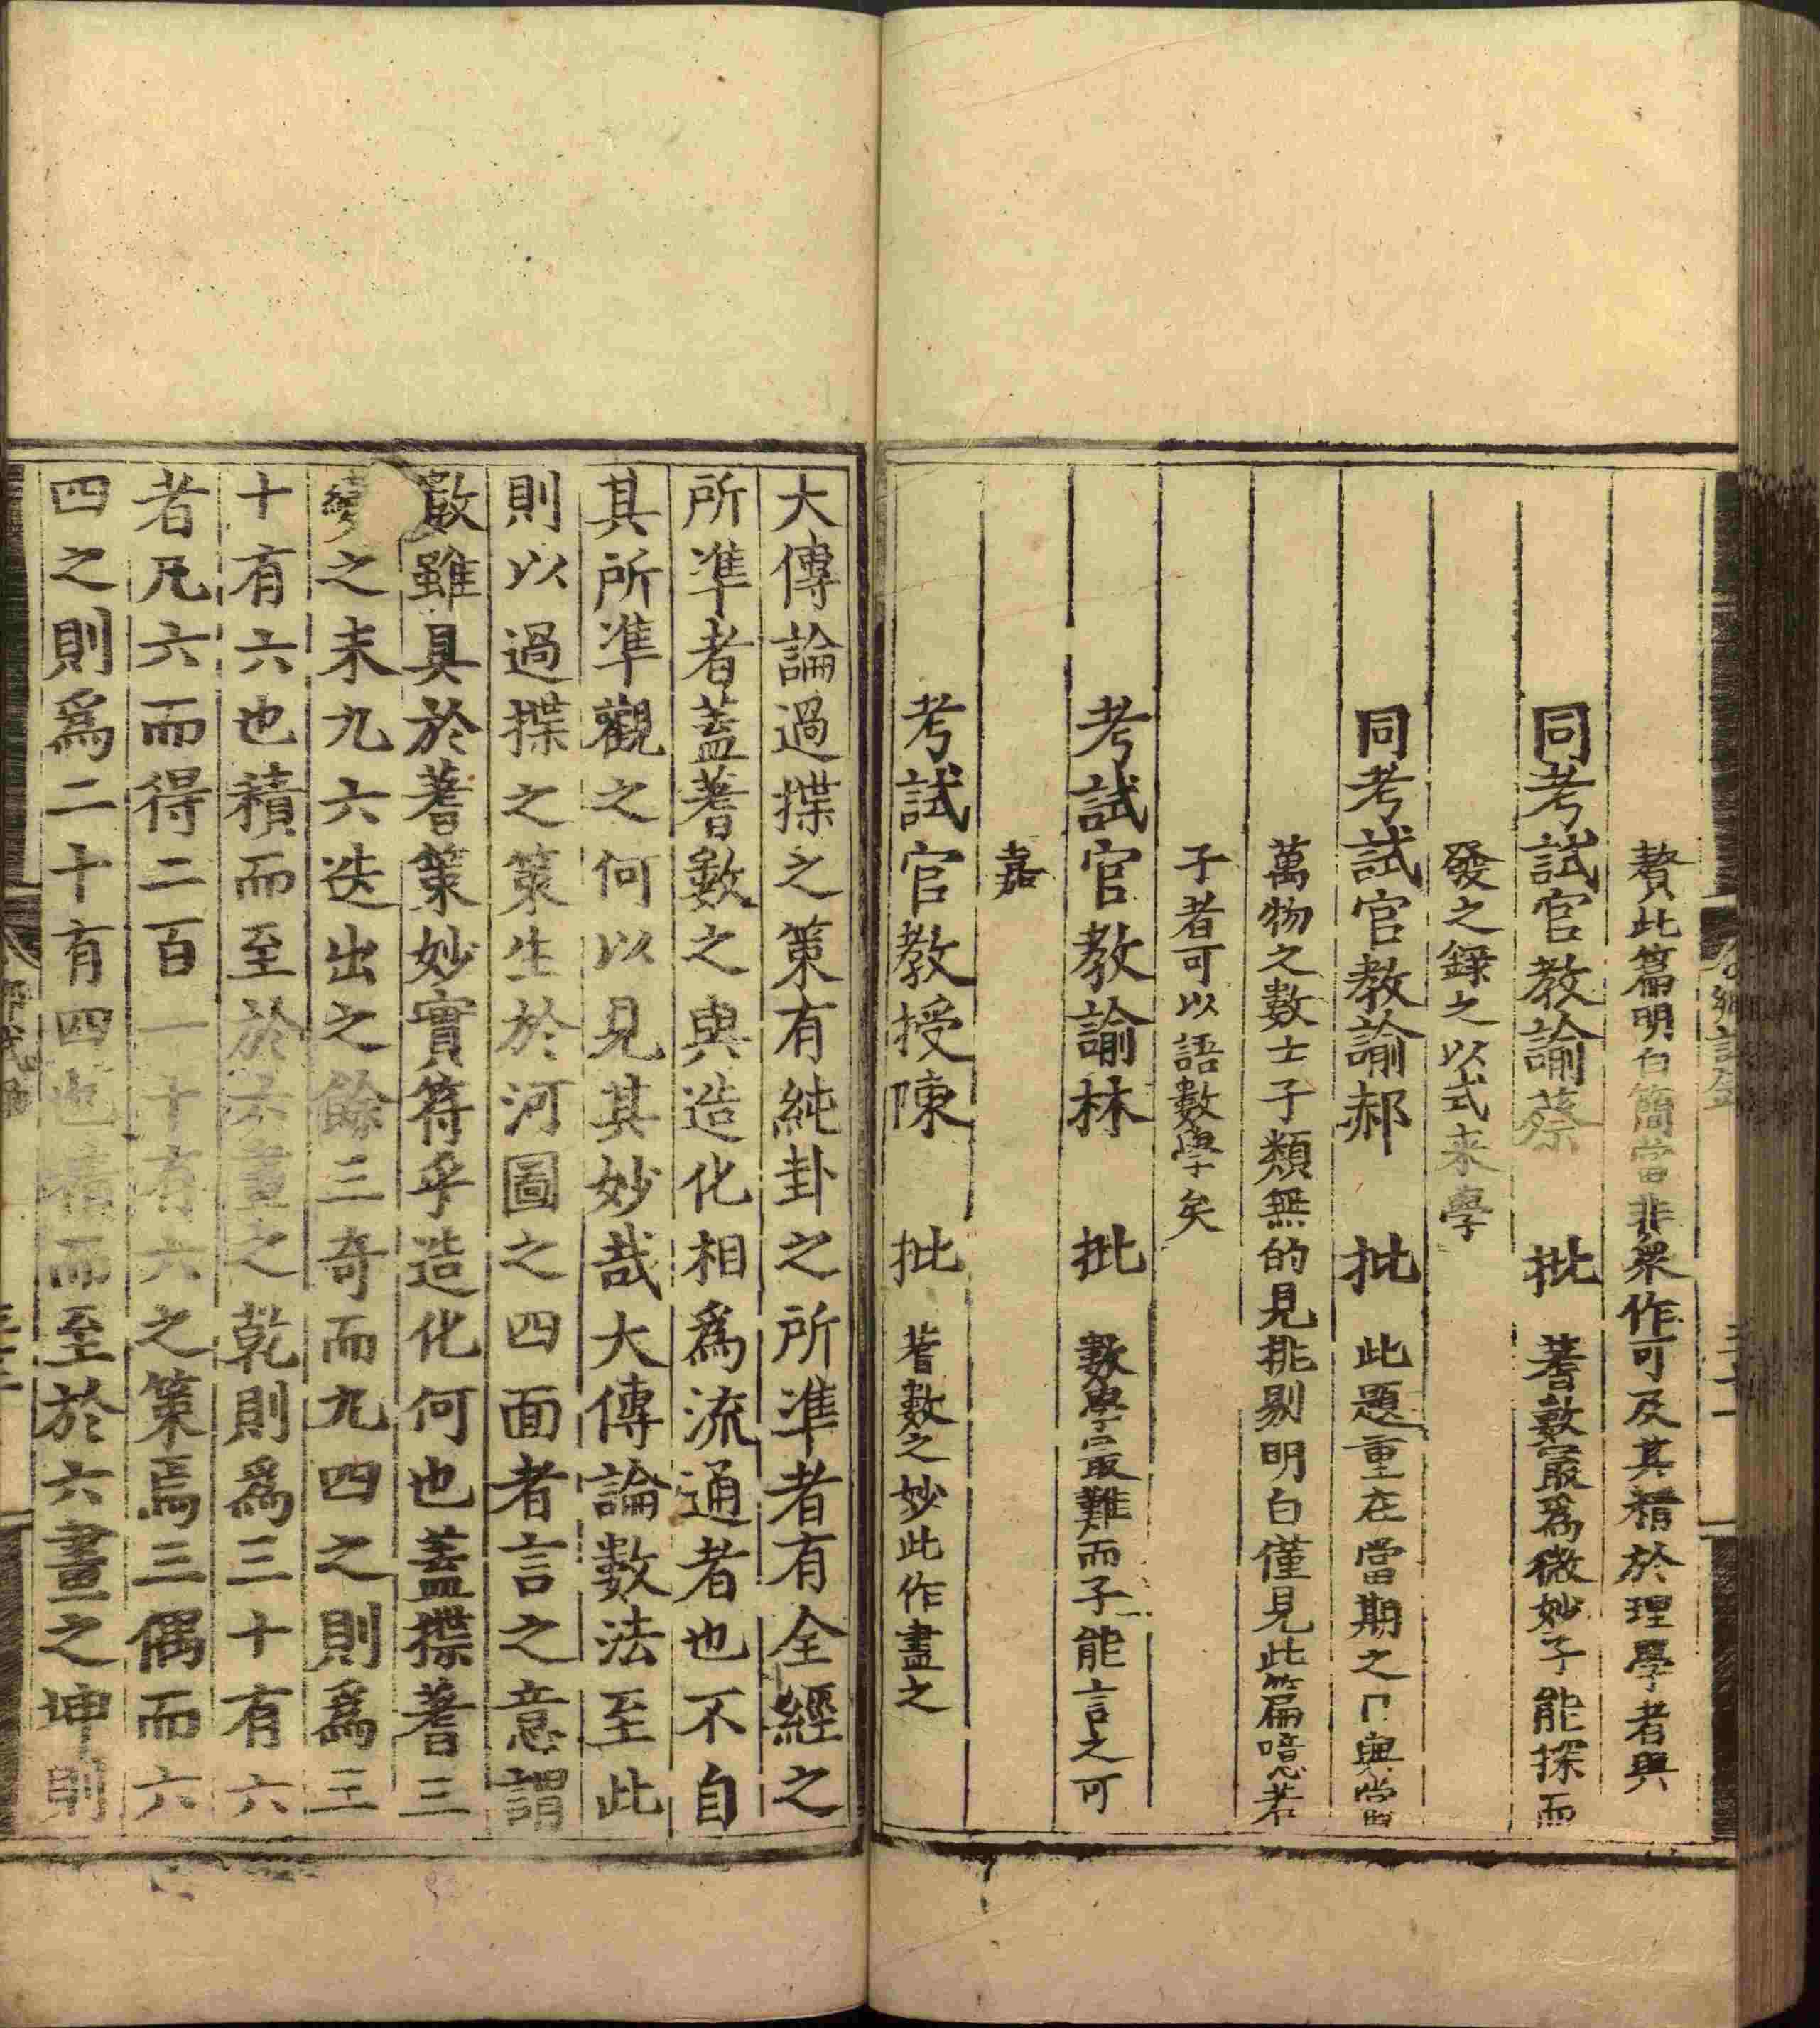 贅此篇明白簡當非衆作可及其精於理學者與
同考試官教諭蔡　批　蓍數最爲微妙子能探而
發之錄之以式来學
同考試官教諭郝　批　此題重在當期之日與當
萬物之數士子類無的見挑剔明白僅見此篇噫若
子者可以語數學矣
考試官教諭林　批　數學最難而子能言之可
嘉
考試官教授陳　批　蓍數之妙此作盡之
大傳論過揲之策有純卦之所準者有全經之
所準者蓋蓍數之與造化相爲流通者也不自
其所準觀之何以見其妙哉大傳論數法至此
則以過揲之策生於河圖之四面者言之意謂
數雖具於蓍策妙實符乎造化何也蓋揲蓍三
變之末九六迭出之餘三奇而九四之則爲三
十有六也積而至於六畫之乾則爲三十有六
者凡六而得二百一十有六之策焉三偶而六
四之則爲二十有四也積而至於六畫之坤則